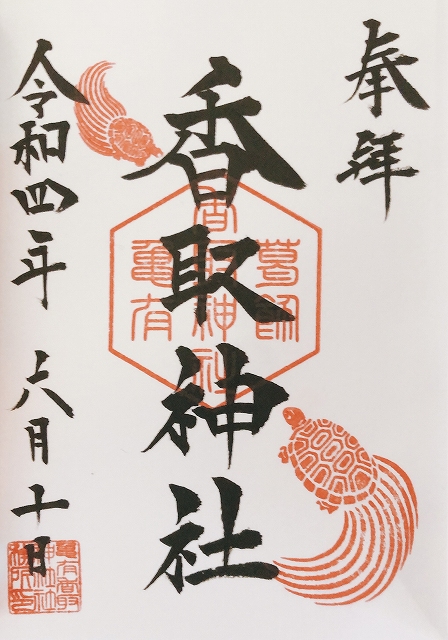 奉拝
葛飾
香取神社
香取神社
亀有
令和四年六月十日